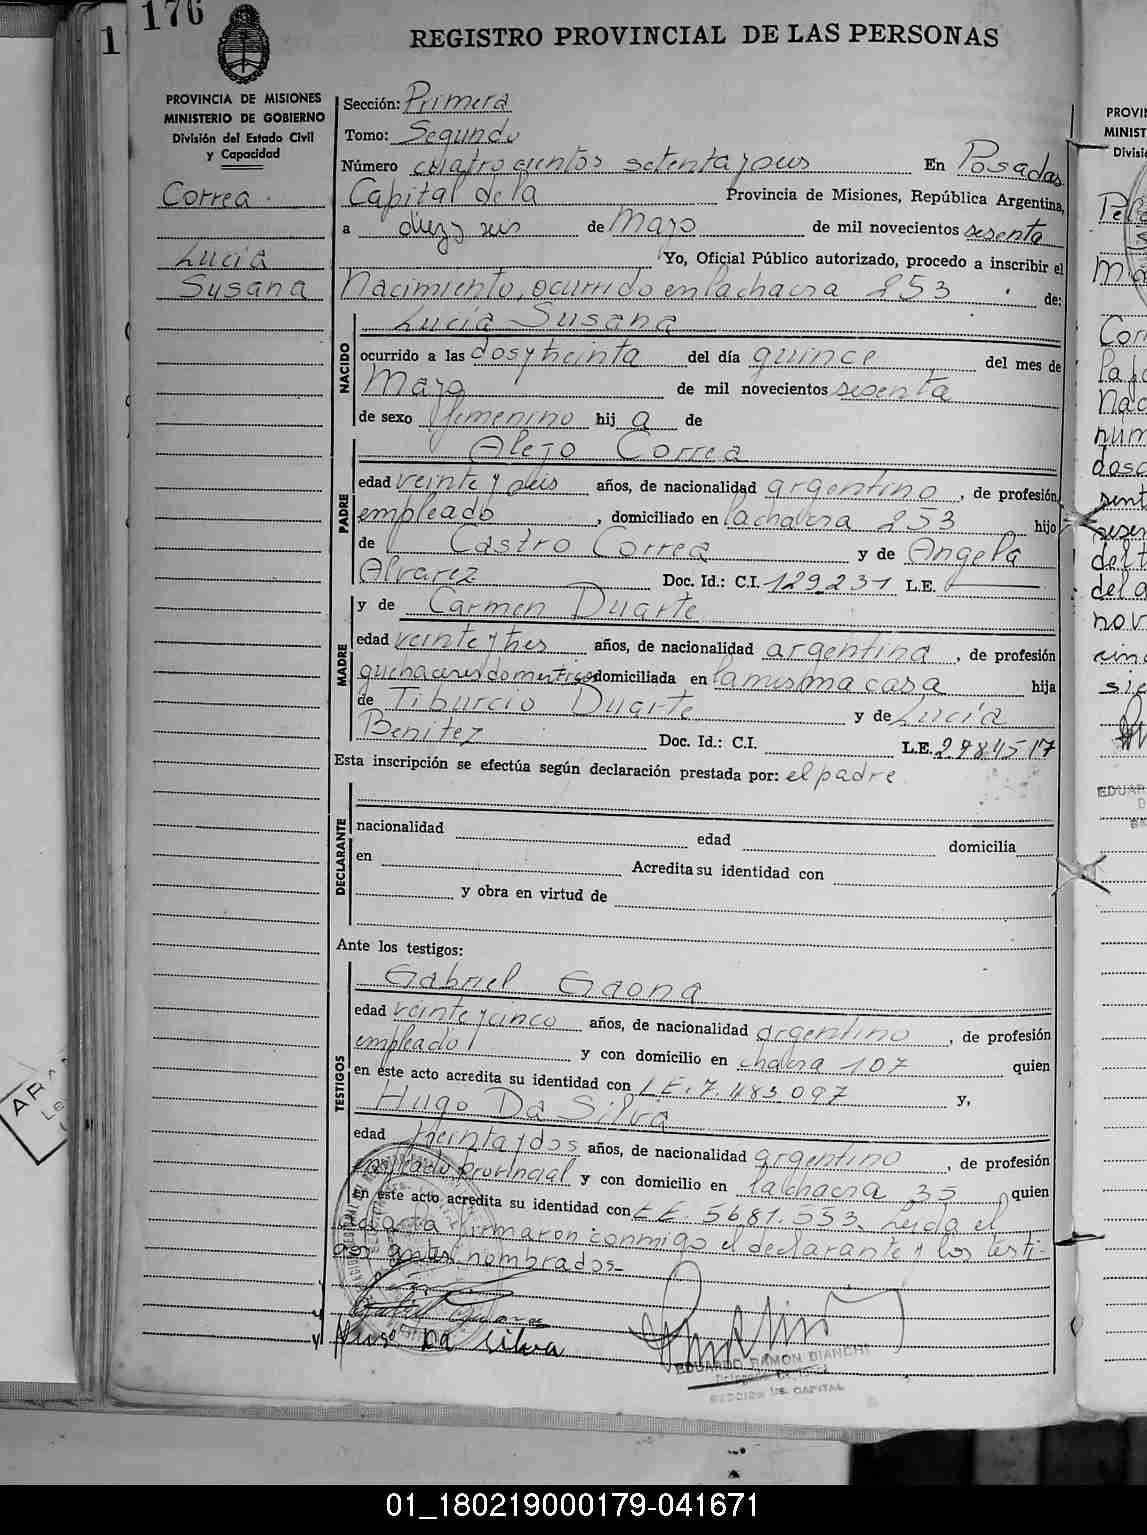 176
1
REGISTRO PROVINCIAL DE LAS PERSONAS
PROVINCIA DE MISIONES
MINISTERIO DE GOBIERNO
División del Estado Civil
y Capacidad
Correa
Lucia
Susana
Sección: Primera
Tomo: Segundo
Número cuatrocientos setenta y seis En Posadas
Capital de la Provincia de Misiones, República Argentina,
a diez y seis de Mayo de mil novecientos sesenta
Yo, Oficial Público autorizado, procedo a inscribir el
Nacimiento, ocurrido en la chacra 253 de:
NACIDO
Lucia Susana
ocurrido a las dos y treinta del día quince del mes de
Mayo de mil novecientos sesenta
de sexo femenino hij a de
PADRE
Alejo Correa
edad veinte y seis años, de nacionalidad argentino, de profesión
empleado, domiciliado en la chacra 253 hijo
de Castro Correa y de Angela
Alvarez Doc. Id.: C.I. 129.231 L.E.
MADRE
y de Carmen Duarte
edad veinte y tres años, de nacionalidad argentina, de profesión
quehaceres domesticos domiciliada en la misma casa hija
de Tiburcio Duarte y de Lucía
Benitez Doc. Id.: C.I. L.E. 2.984517
Esta inscripción se efectúa según declaración prestada por: el padre
DECLARANTE
nacionalidad edad domicilia
en Acredita su identidad con
y obra en virtud de
Ante los testigos:
TESTIGOS
Gabriel Gaona
edad veinte y cinco años, de nacionalidad argentino, de profesión
empleado y con domicilio en chacra 107 quien
en este acto acredita su identidad con L.E. 7.483.097 y,
Hugo Da Silva
edad treinta y dos años, de nacionalidad argentino, de profesión
empleado provincial y con domicilio en la chacra 35 quien
en este acto acredita su identidad con L.E. 5681.553. Leida el
acta firmaron conmigo el declarante y los testi-
gos antes nombrados-
Hugo Da Silva
EDUARDO RAMON BIANCHI
SECCION 1ª. CAPITAL
01_180219000179-041671